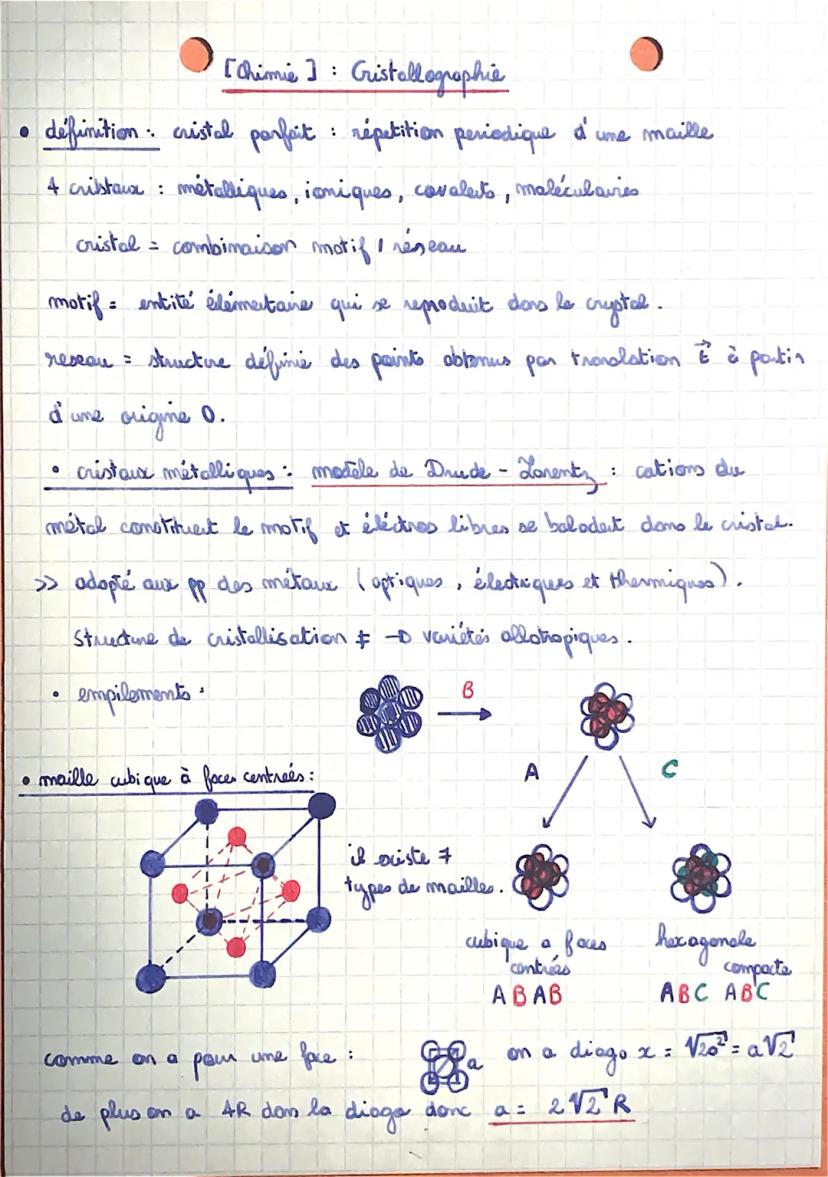 [Chimie] : Cristallographie
• définition : cristal parfait : répétition periodique d'une maille
4 cristaux : métalliques, ioniques, covalents, moléculaires
cristal = combinaison motif / réseau
motif = entité élémentaire qui se reproduit dans le crystal.
reseau = structure définie des points obtenus par translation t⃗ à partir
d'une origine O.
• cristaux métalliques : modèle de Drude - Lorentz : cations du
métal constituent le motif et éléctros libres se baladent dans le cristal.
>> adapté aux pp des métaux (optiques, électriques et thermiques).
Structure de cristallisation ≠ → variétés allotropiques.
• empilements :
B
A
C
• maille cubique à faces centreés :
il existe 7
types de mailles.
cubique a faces
centrées
A B A B
hexagonale
compacte
ABC ABC
comme on a pour une face :
a
on a diago x = √2a² = a√2
de plus on a 4R dans la diago donc a = 2√2 R